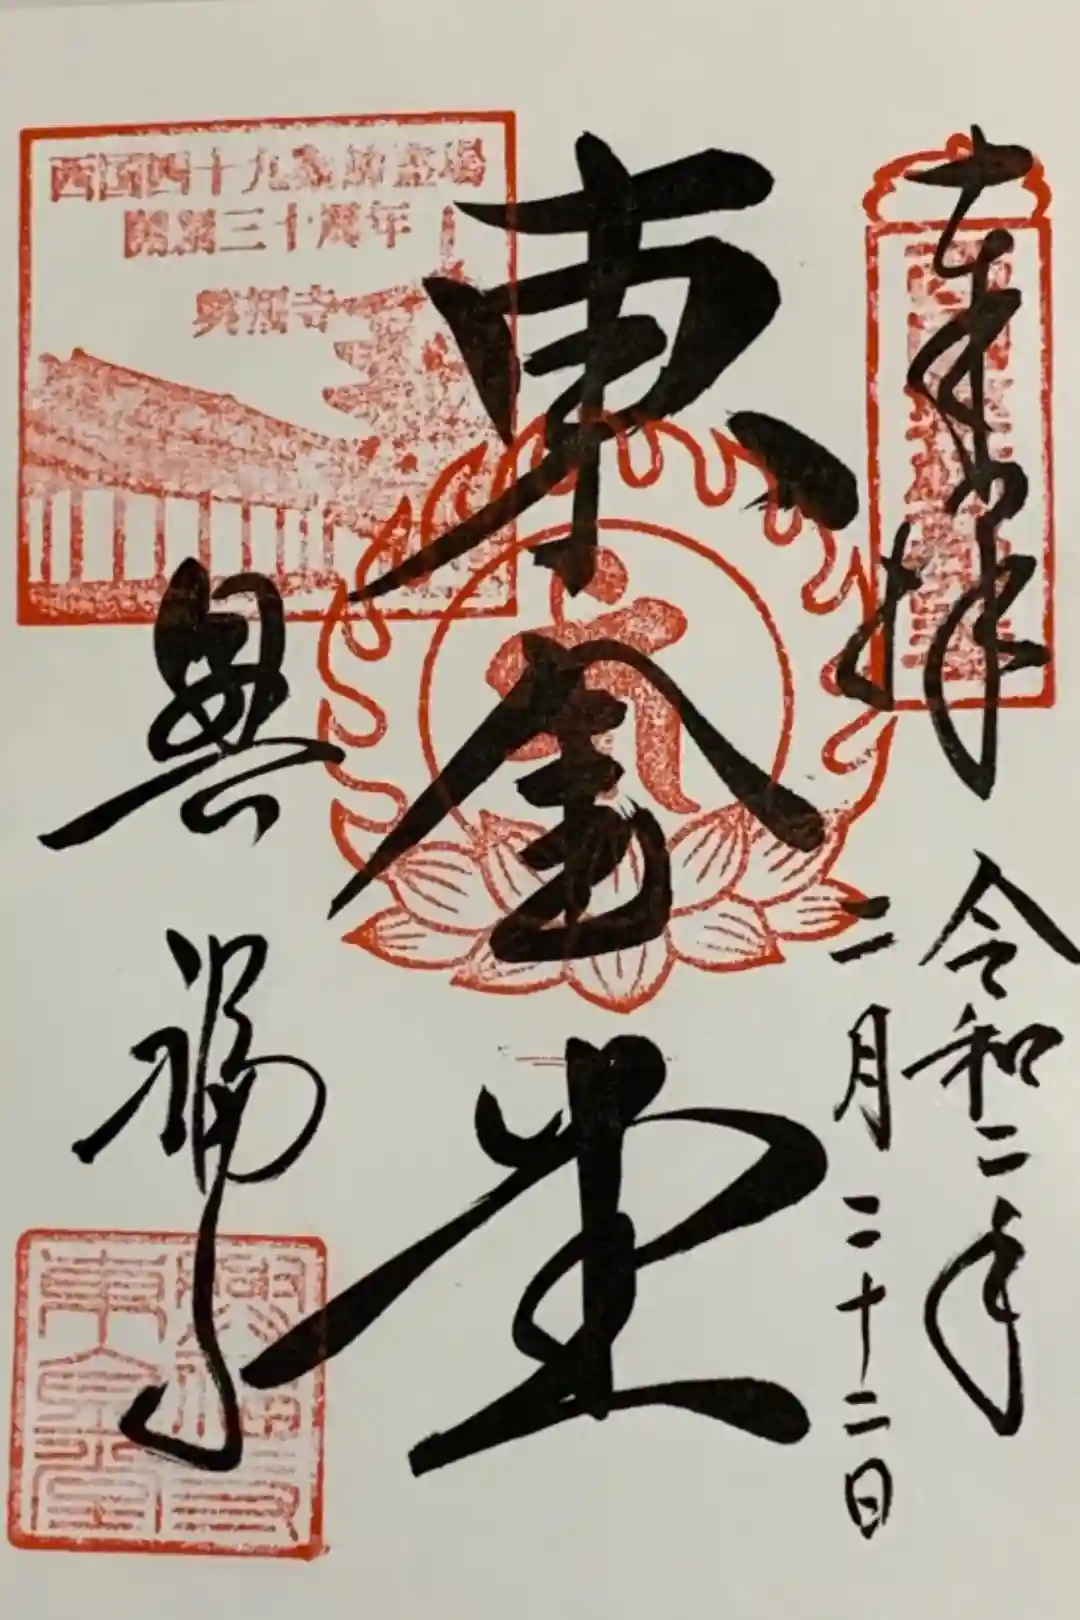 奉拝
令和二年
二月二十二日
東金堂
興福寺
西国四十九薬師霊場
開創三十周年
興福寺
興福寺
東金堂